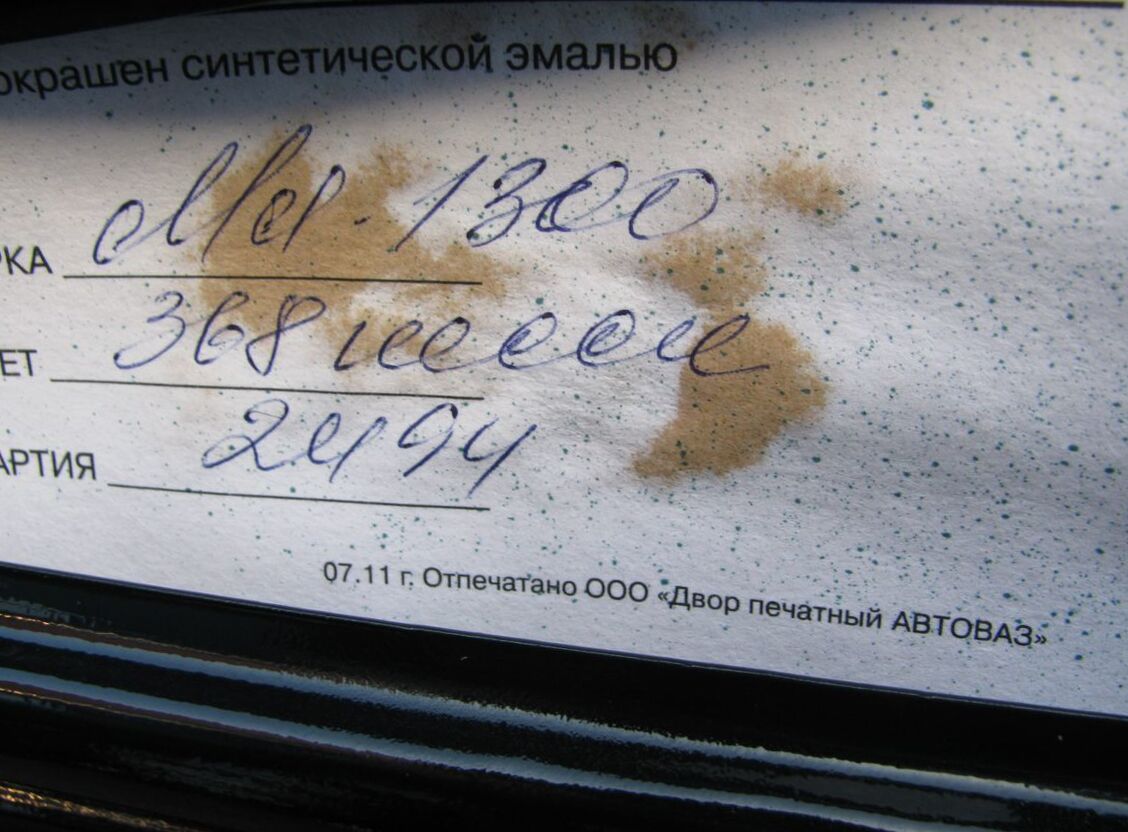 окрашен синтетической эмалью
РКА Мл-1300
ЕТ 368 несси
АРТИЯ 2494
07.11 г. Отпечатано ООО «Двор печатный АВТОВАЗ»